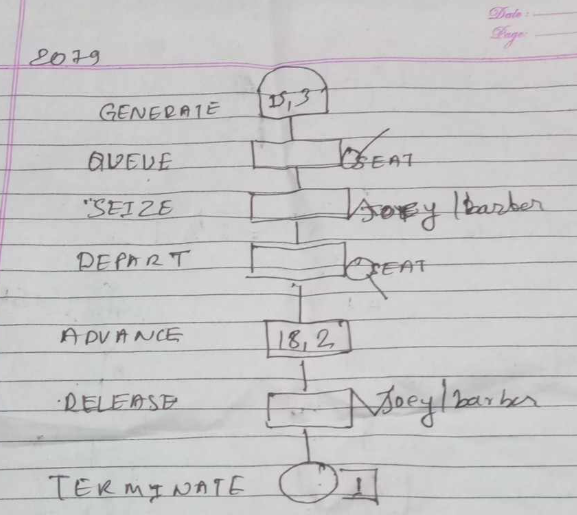 Date:
Page:
2079
GENERATE 15,3
QUEUE SEAT
SEIZE Joey/barber
DEPART SEAT
ADVANCE 18,2
RELEASE Joey/barber
TERMINATE 1